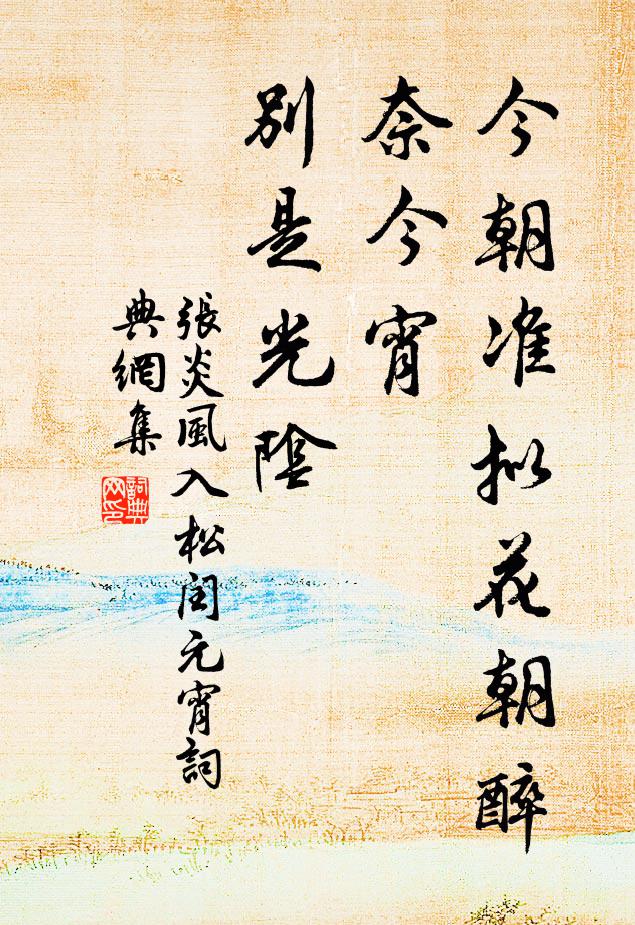 今朝准拟花朝醉
奈今宵
别是光陰
張炎風入松閏元宵詞
典網集
詞典
网印